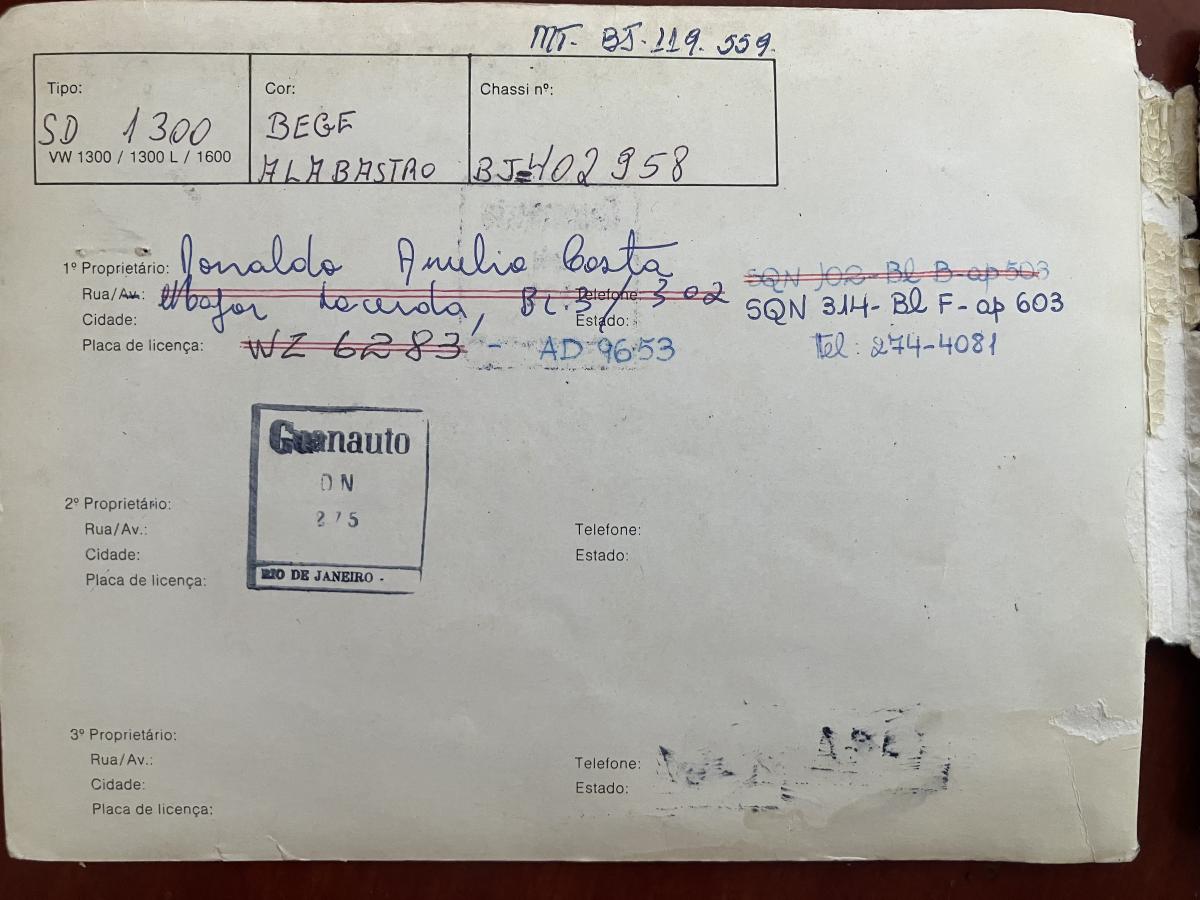 MT- BJ-119.559.
Tipo:
SD 1300
VW 1300 / 1300 L / 1600
Cor:
BEGE
ALABASTRO
Chassi nº:
BJ=402958
1º Proprietário: Ronaldo Aurélio Costa
SQN 102- Bl B-ap 503
Rua/Av.: Major Lacerda, Bl. 3/ 302
Telefone:
SQN 314- Bl F- ap 603
Cidade:
Estado:
Placa de licença: WZ 6283 - AD 9653
Tel: 274-4081
Guanauto
DN
275
RIO DE JANEIRO -
2º Proprietário:
Rua/Av.:
Telefone:
Cidade:
Estado:
Placa de licença:
3º Proprietário:
Rua/Av.:
Telefone:
Cidade:
Estado:
Placa de licença: